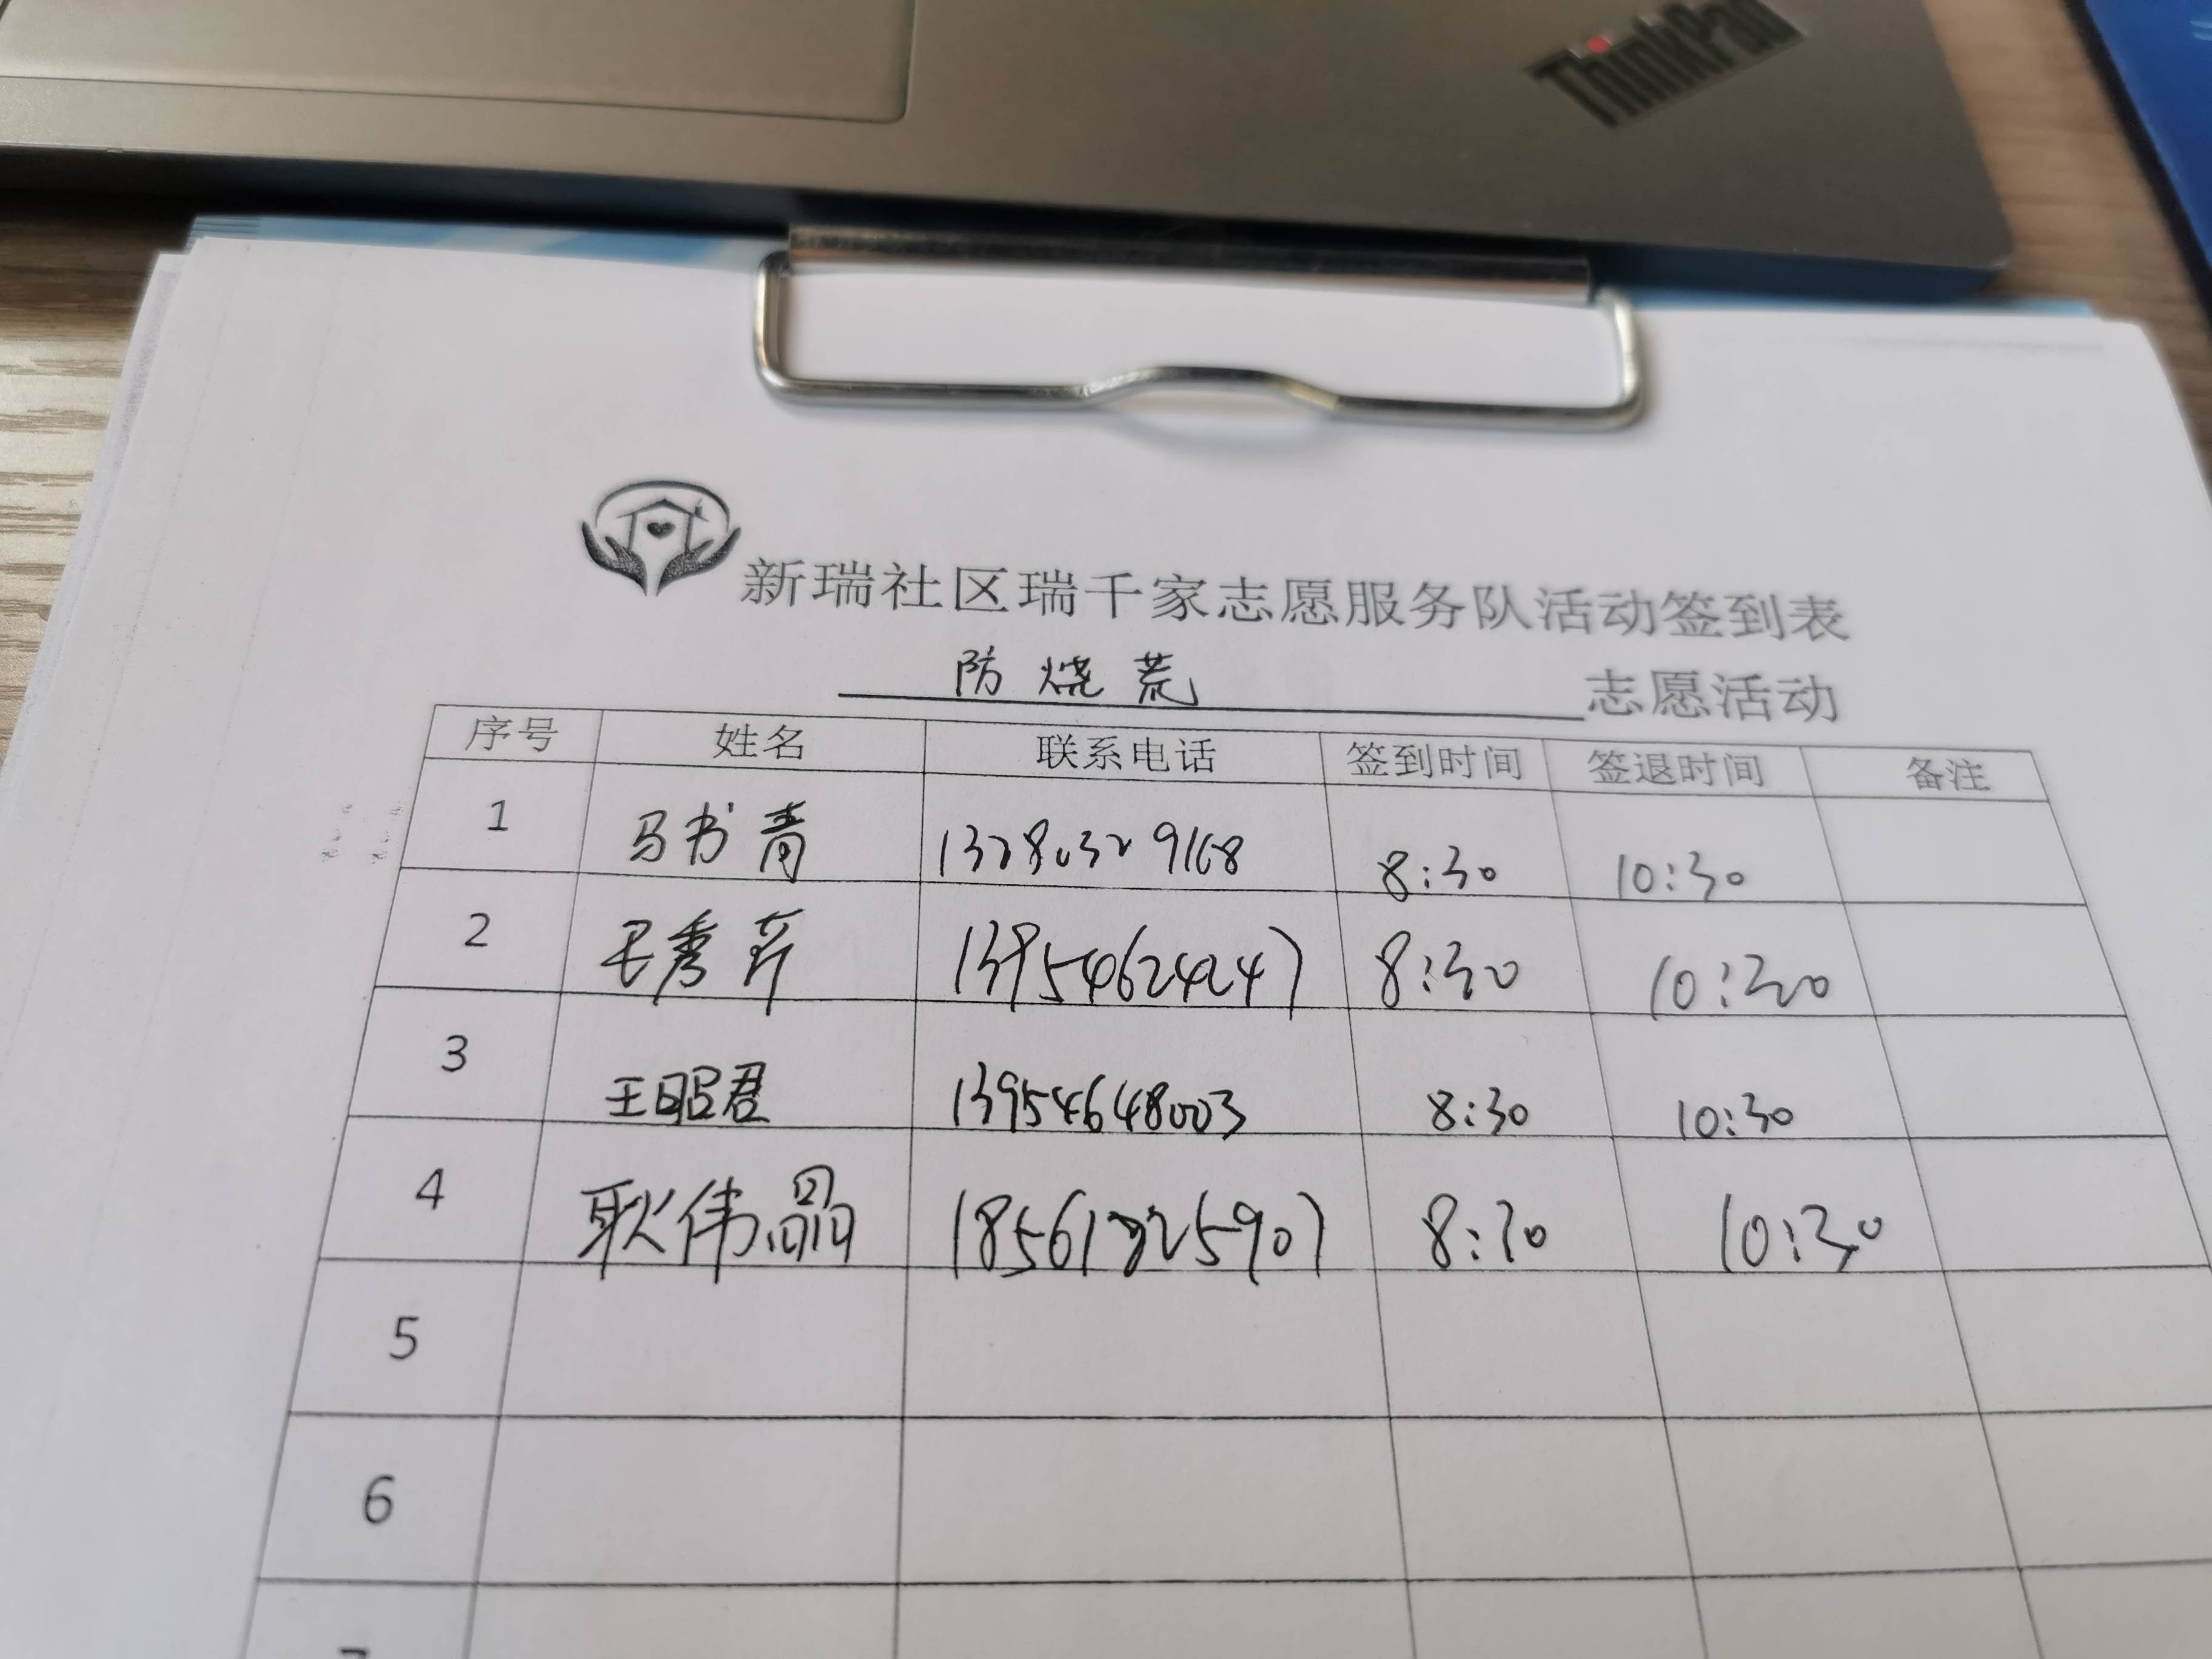 ThinkPad
新瑞社区瑞千家志愿服务队活动签到表
防烧荒 志愿活动
序号 姓名 联系电话 签到时间 签退时间 备注
1 马书青 13280329168 8:30 10:30
2 秀芹 13954624247 8:30 10:30
3 王昭君 13954648003 8:30 10:30
4 耿伟晶 8:30 10:30
5
6